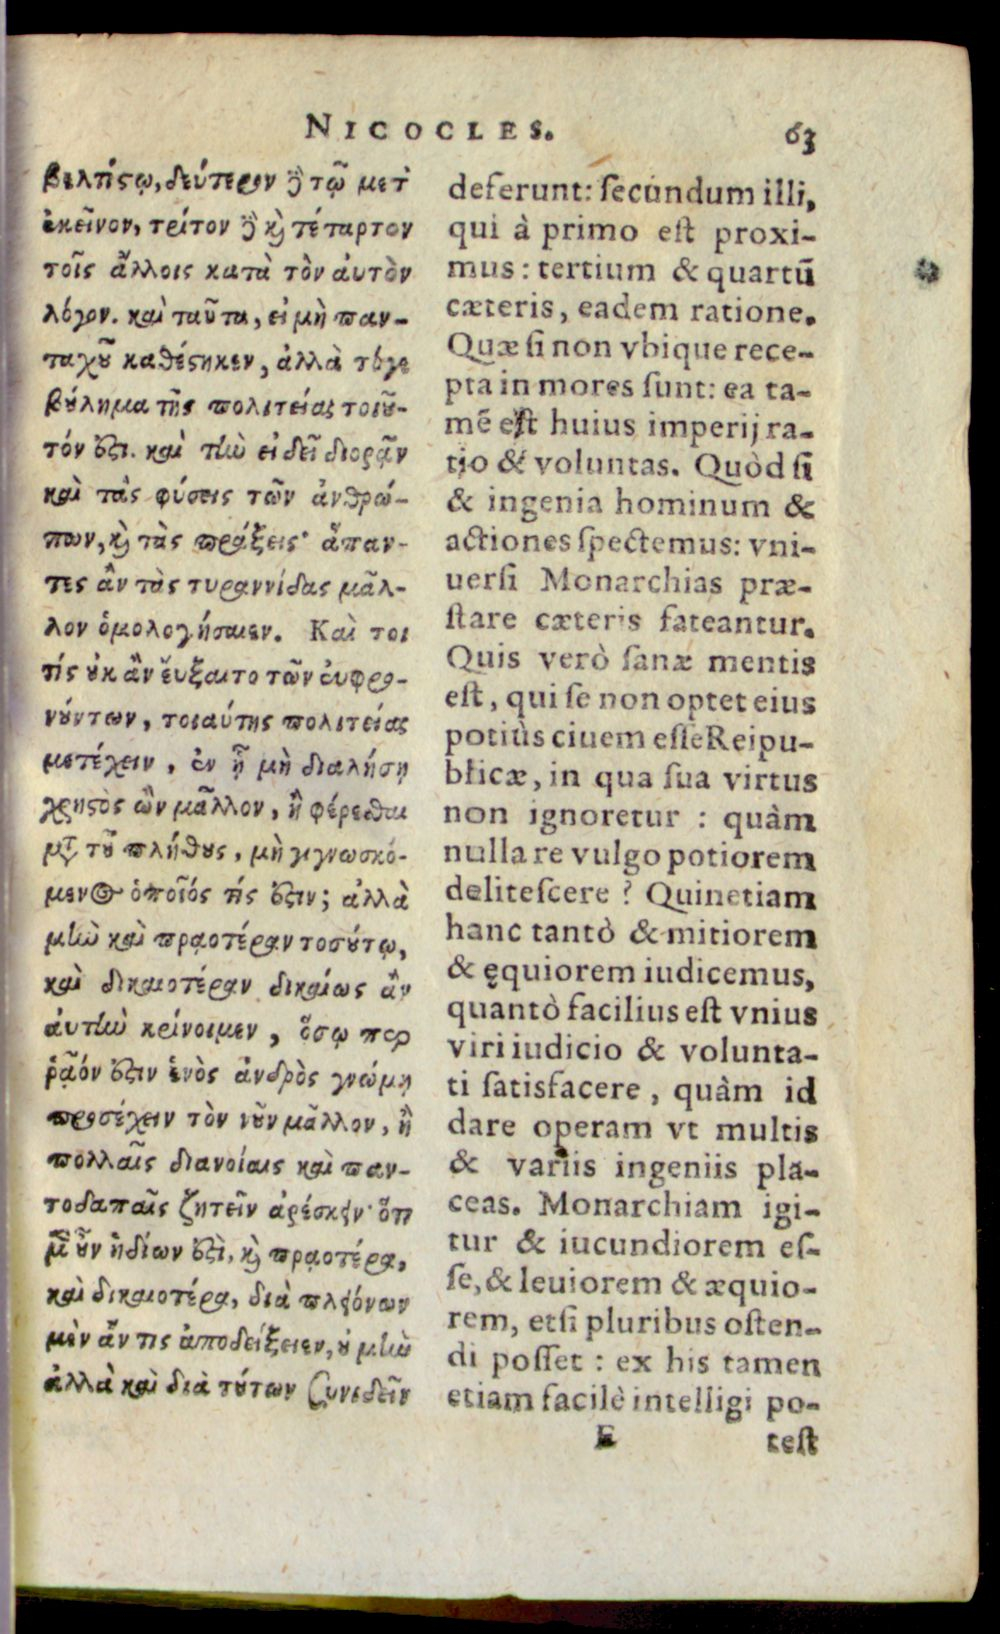 NICOCLES. 63
βελτίστῳ, δεύτερον δὲ τῷ μετ᾽
ἐκεῖνον, τρίτον δὲ καὶ τέταρτον
τοῖς ἄλλοις κατὰ τὸν αὐτὸν
λόγον. καὶ ταῦτα, εἰ μὴ παν-
ταχοῦ καθέστηκεν, ἀλλὰ τόγε
βούλημα τῆς πολιτείας τοιοῦ-
τόν ἐστι. καὶ τὴν εἰ δεῖ διορᾷν
καὶ τὰς φύσεις τῶν ἀνθρώ-
πων, καὶ τὰς πράξεις· ἅπαν-
τες ἂν τὰς τυραννίδας μᾶλ-
λον ὁμολογήσαιεν. Καί τοι
τίς οὐκ ἂν εὔξαιτο τῶν εὐφρο-
νούντων, τοιαύτης πολιτείας
μετέχειν, ἐν ᾗ μὴ διαλήσῃ
χρηστὸς ὢν μᾶλλον, ἢ φέρεσθαι
μετὰ τοῦ πλήθους, μὴ γιγνωσκό-
μενος ὁποῖός τίς ἐστιν; ἀλλὰ
μὴν καὶ πρᾳοτέραν τοσούτῳ,
καὶ δικαιοτέραν δικαίως ἂν
αὐτὴν κρίνοιμεν, ὅσῳ περ
ῥᾷόν ἐστιν ἑνὸς ἀνδρὸς γνώμῃ
προσέχειν τὸν νοῦν μᾶλλον, ἢ
πολλαῖς διανοίαις καὶ παν-
τοδαπαῖς ζητεῖν ἀρέσκειν· ὅτι
μὲν οὖν ἡδίων ἐστὶ, καὶ πρᾳοτέρα,
καὶ δικαιοτέρα, διὰ πλειόνων
μὲν ἄν τις ἀποδείξειεν, οὐ μὴν
ἀλλὰ καὶ διὰ τούτων συνιδεῖν
deferunt: secundum illi,
qui à primo est proxi-
mus: tertium & quartū
cæteris, eadem ratione.
Quæ si non vbique rece-
pta in mores sunt: ea ta-
mē est huius imperij ra-
tio & voluntas. Quòd si
& ingenia hominum &
actiones spectemus: vni-
uersi Monarchias præ-
stare cæteris fateantur.
Quis verò sanæ mentis
est, qui se non optet eius
potiùs ciuem esse Reipu-
blicæ, in qua sua virtus
non ignoretur : quàm
nulla re vulgo potiorem
delitescere ? Quinetiam
hanc tantò & mitiorem
& ęquiorem iudicemus,
quantò facilius est vnius
viri iudicio & volunta-
ti satisfacere, quàm id
dare operam vt multis
& variis ingeniis pla-
ceas. Monarchiam igi-
tur & iucundiorem es-
se, & leuiorem & æquio-
rem, etsi pluribus osten-
di posset : ex his tamen
etiam facilè intelligi po-
E test